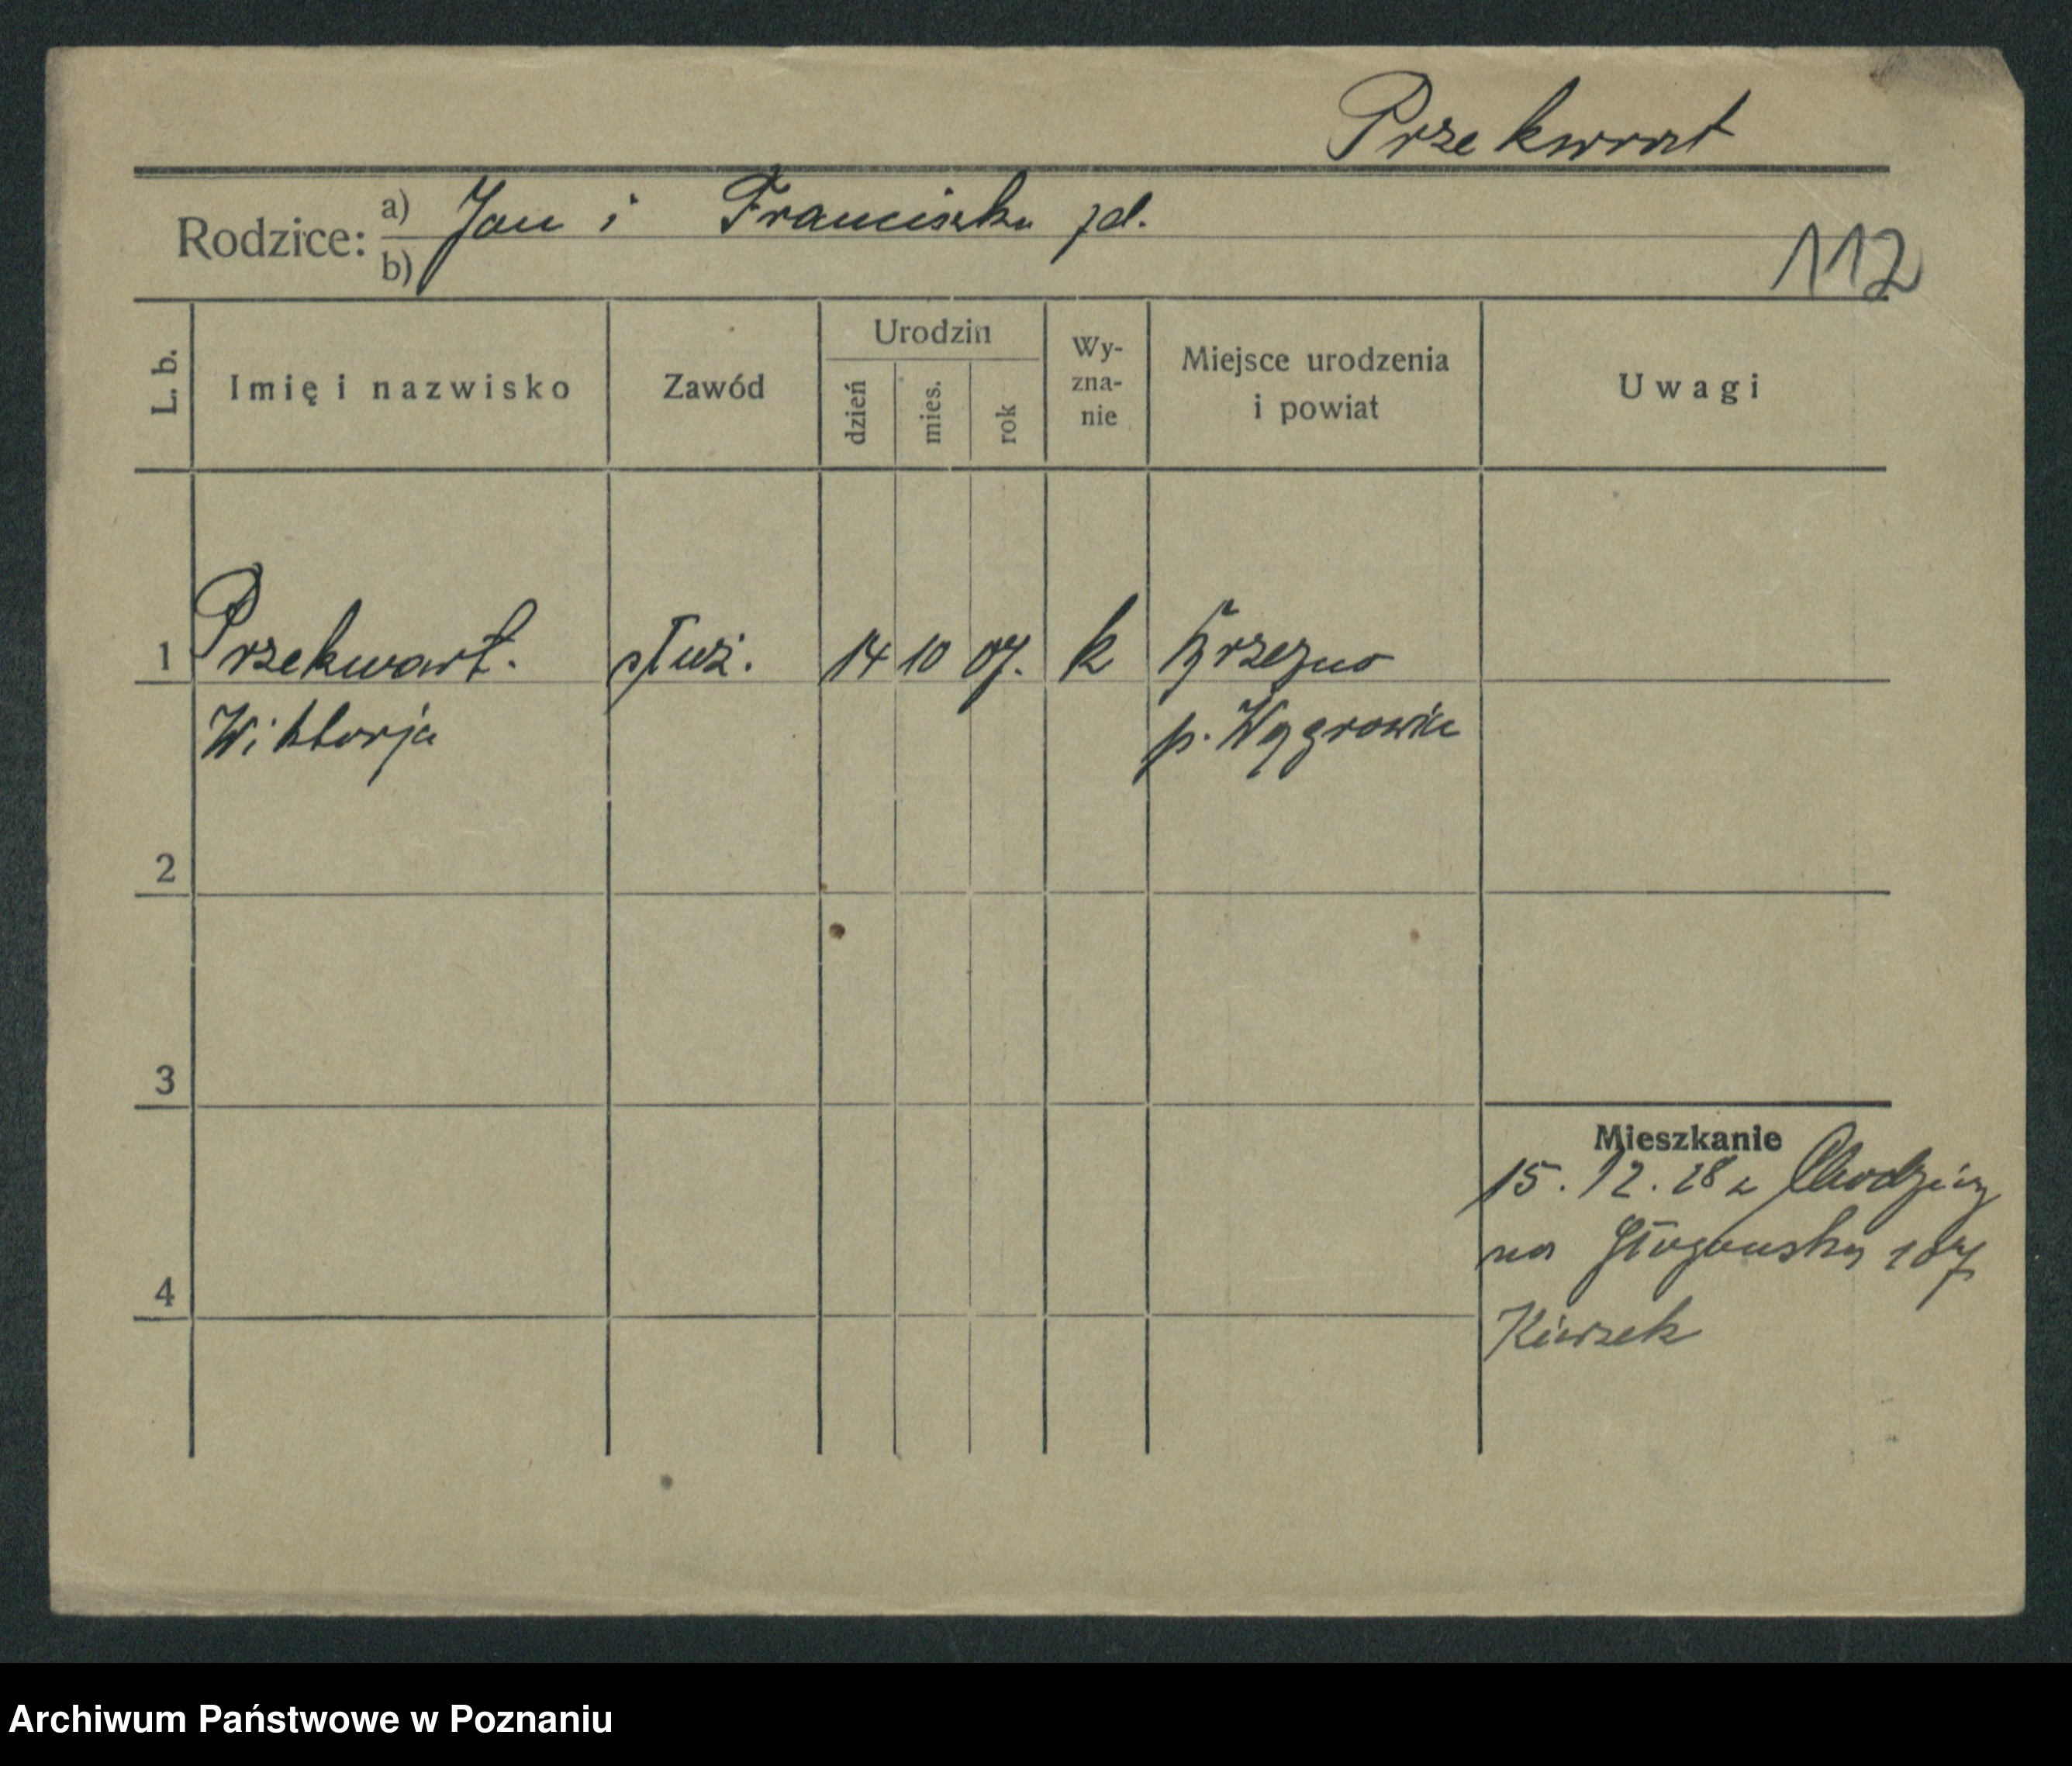 Przekwart
Rodzice: a) Jan i Franciszka jd.
b)
112
L. b.
Imię i nazwisko
Zawód
Urodzin
dzień
mies.
rok
Wy-
zna-
nie
Miejsce urodzenia
i powiat
Uwagi
1 Przekwart. służ. 14 10 07. k
Wiktorja p. Wągrowiec
2
3
4
Mieszkanie
15.12.28 z Chodzieży
na Głogowską 107
Archiwum Państwowe w Poznaniu